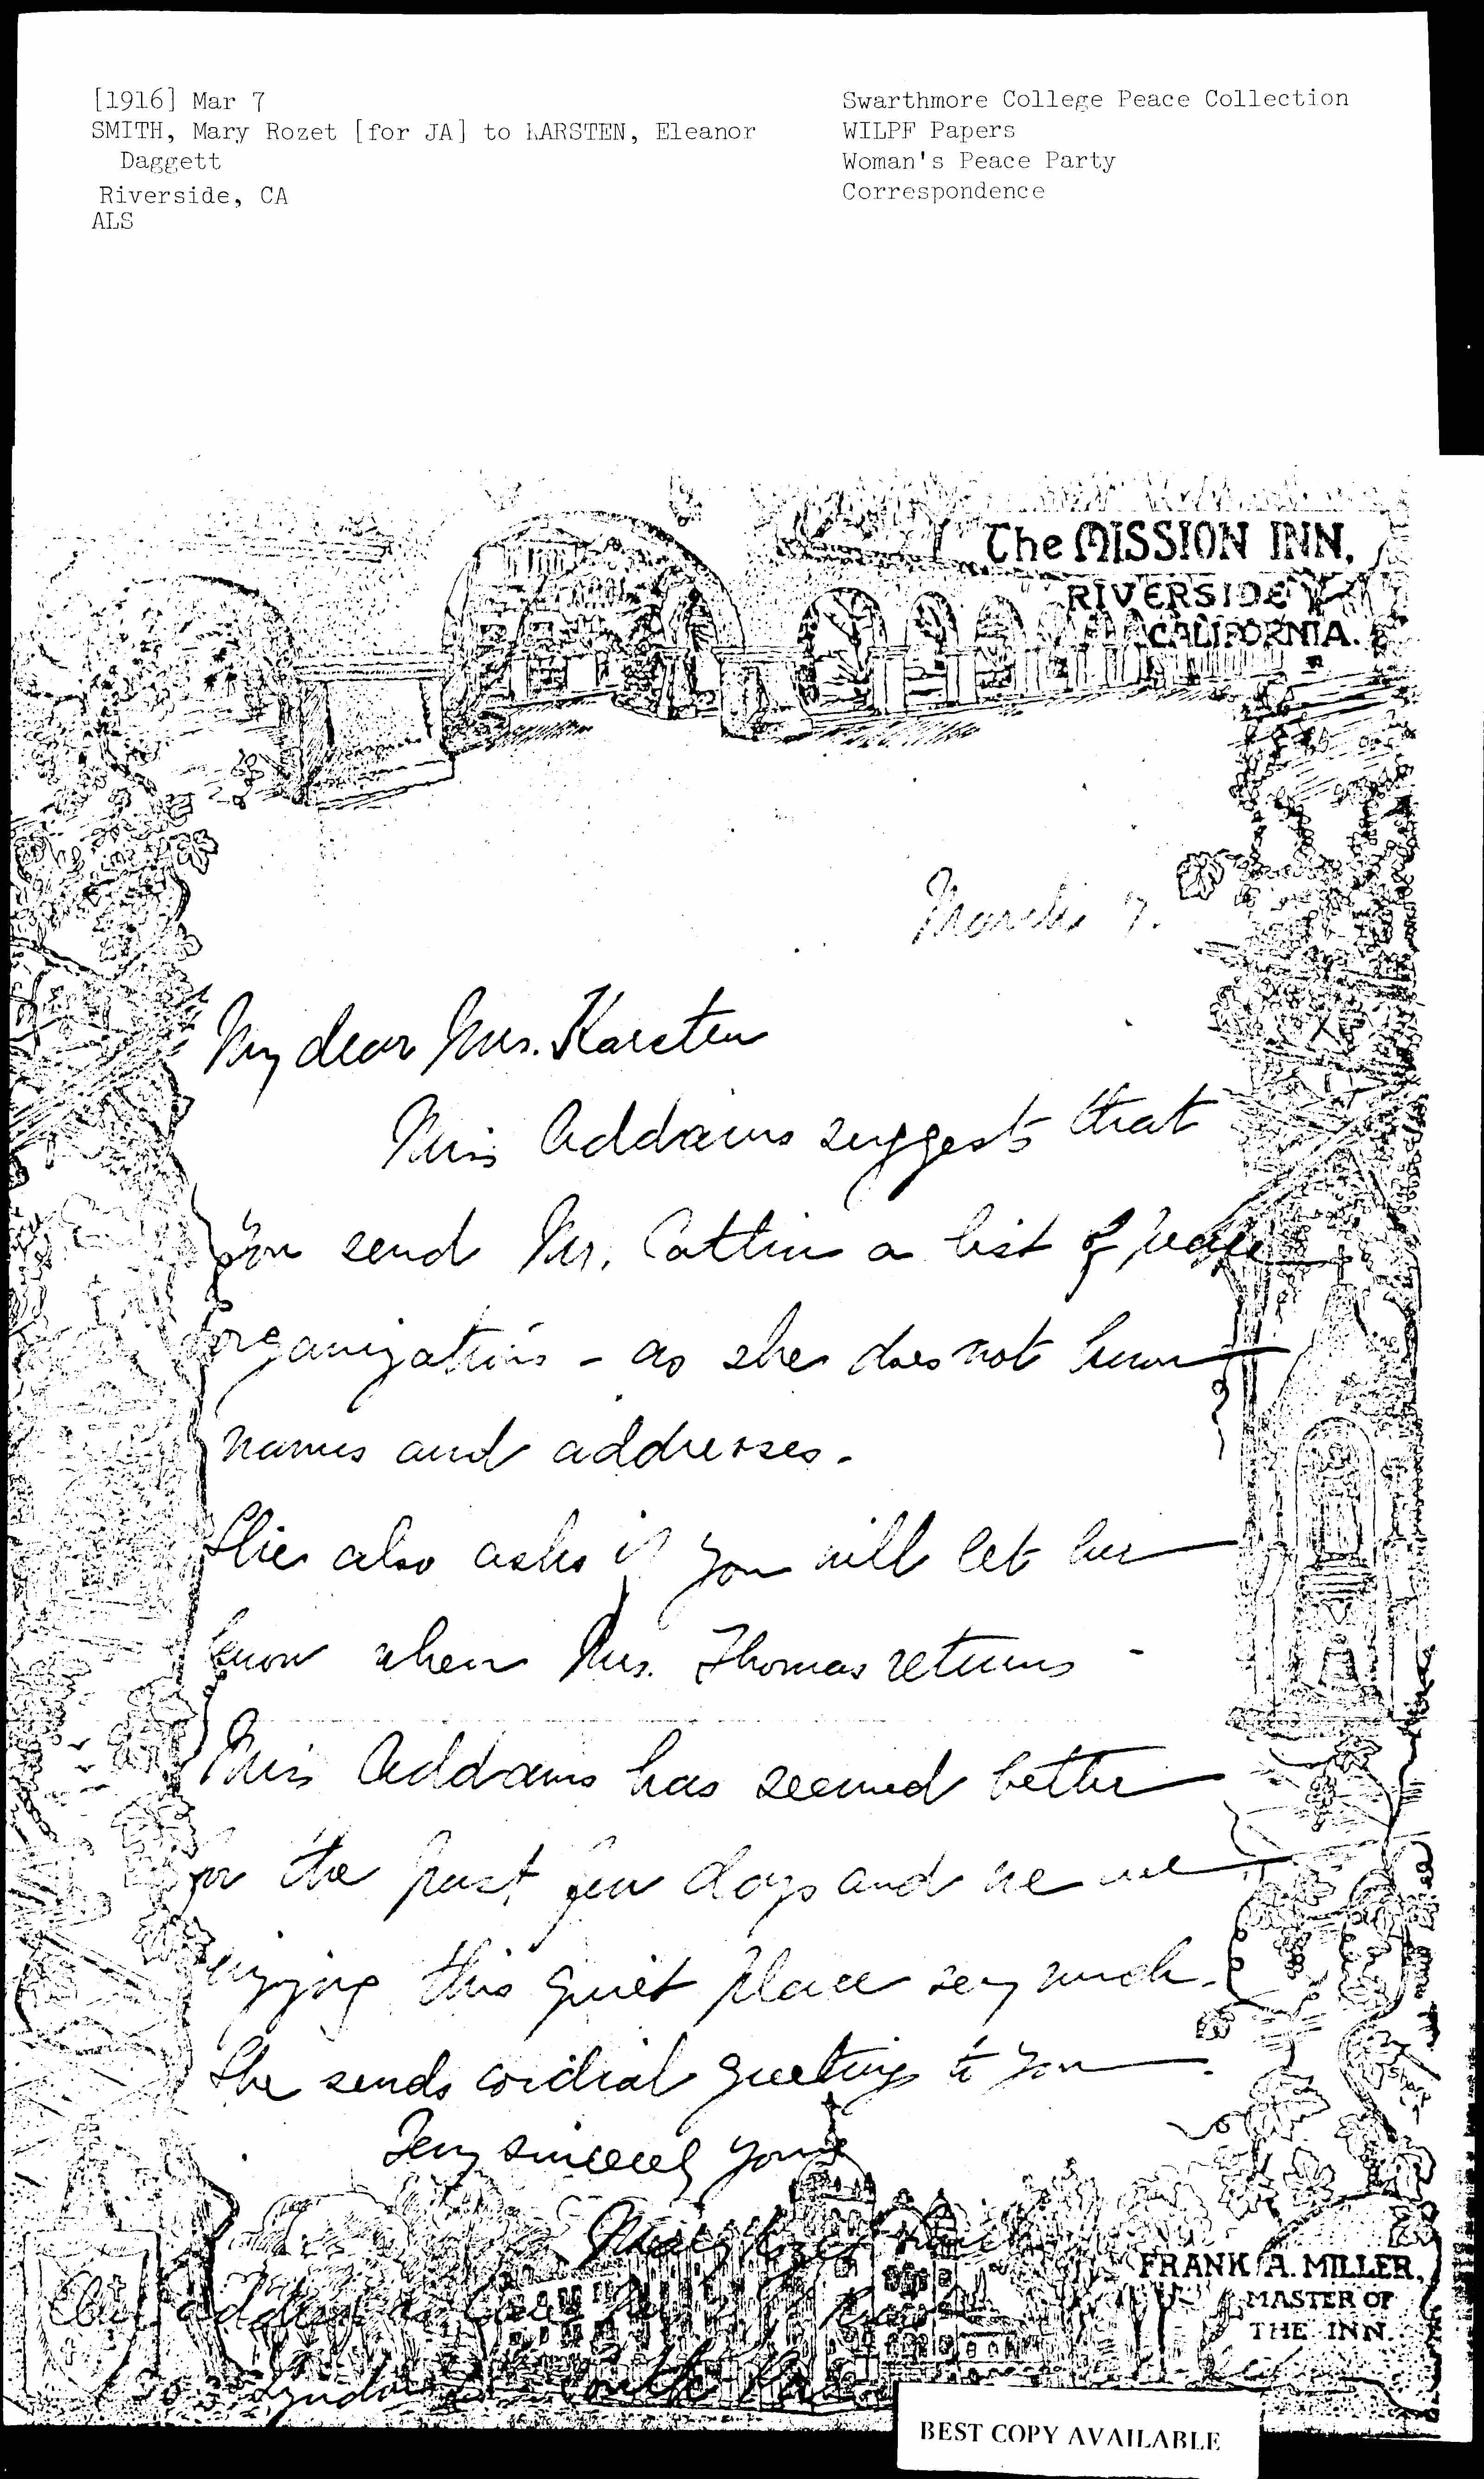 [1916] Mar 7
SMITH, Mary Rozet [for JA] to KARSTEN, Eleanor
Daggett
Riverside, CA
ALS
Swarthmore College Peace Collection
WILPF Papers
Woman's Peace Party
Correspondence
The MISSION INN,
RIVERSIDE
CALIFORNIA.
March 7.
My dear Mrs. Karsten
Miss Addams suggests that
you send Mr. Cattin a list of peace
organizations - as she does not know
names and addresses.
She also asks if you will let her
know when Mrs. Thomas returns -
Miss Addams has seemed better
for the past few days and we are
enjoying this quiet place very much.
She sends cordial greetings to you.
Very sincerely yours
Mary Rozet Smith
Our address is care
South
FRANK A. MILLER,
MASTER OF
THE INN.
BEST COPY AVAILABLE